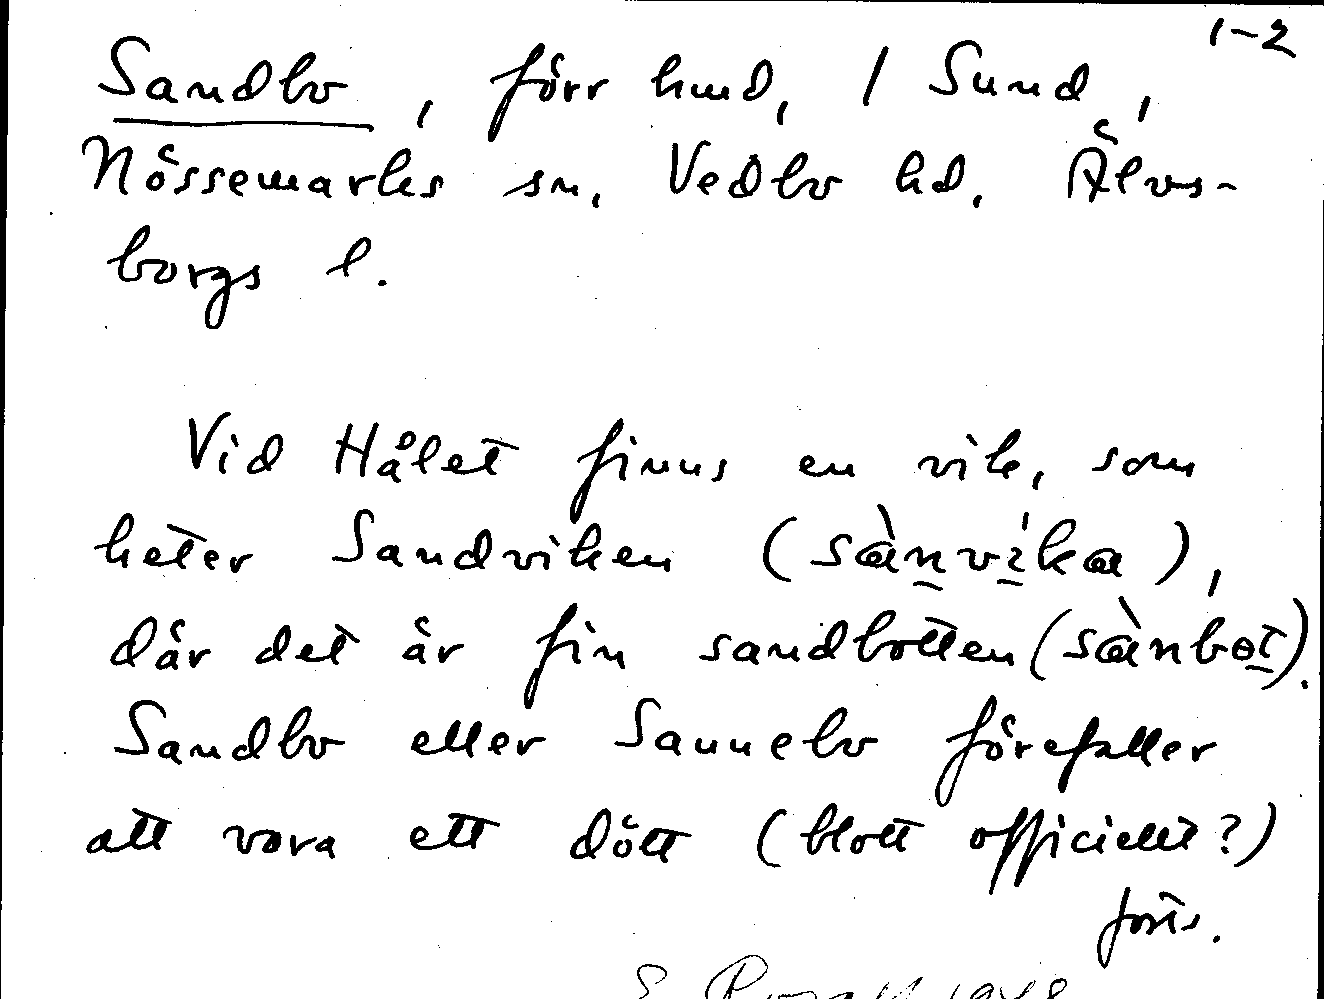 1-2
Sandbo, förr hmd, / Sund,
Nössemarks sn, Vedbo hd. Älvs-
borgs l.
Vid Hålet finns en vik, som
heter Sandviken (sànvíka),
där det är fin sandbotten (sànbot).
Sandbo eller Sannebo förefaller
att vara ett dött (blott officiellt?)
forts.